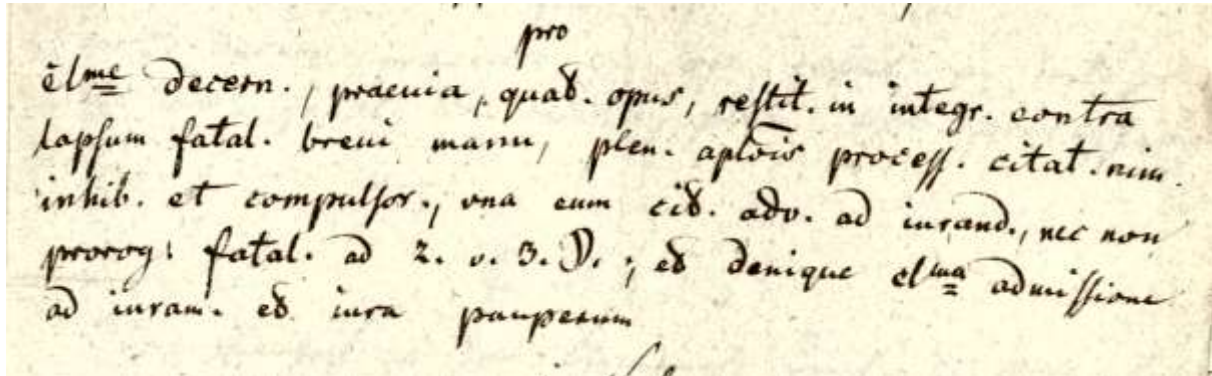 pro
clme decern., praevia, quat. opus, restit. in integr. contra
lapsum fatal. brevi manu, plen. aplōis process. citat. nim.
inhib. et compulsor., una cum cit. adv. ad iurand., nec non
prorog. fatal. ad 2. v. 3. M.; et denique clma admissione
ad iuram. et iura pauperum